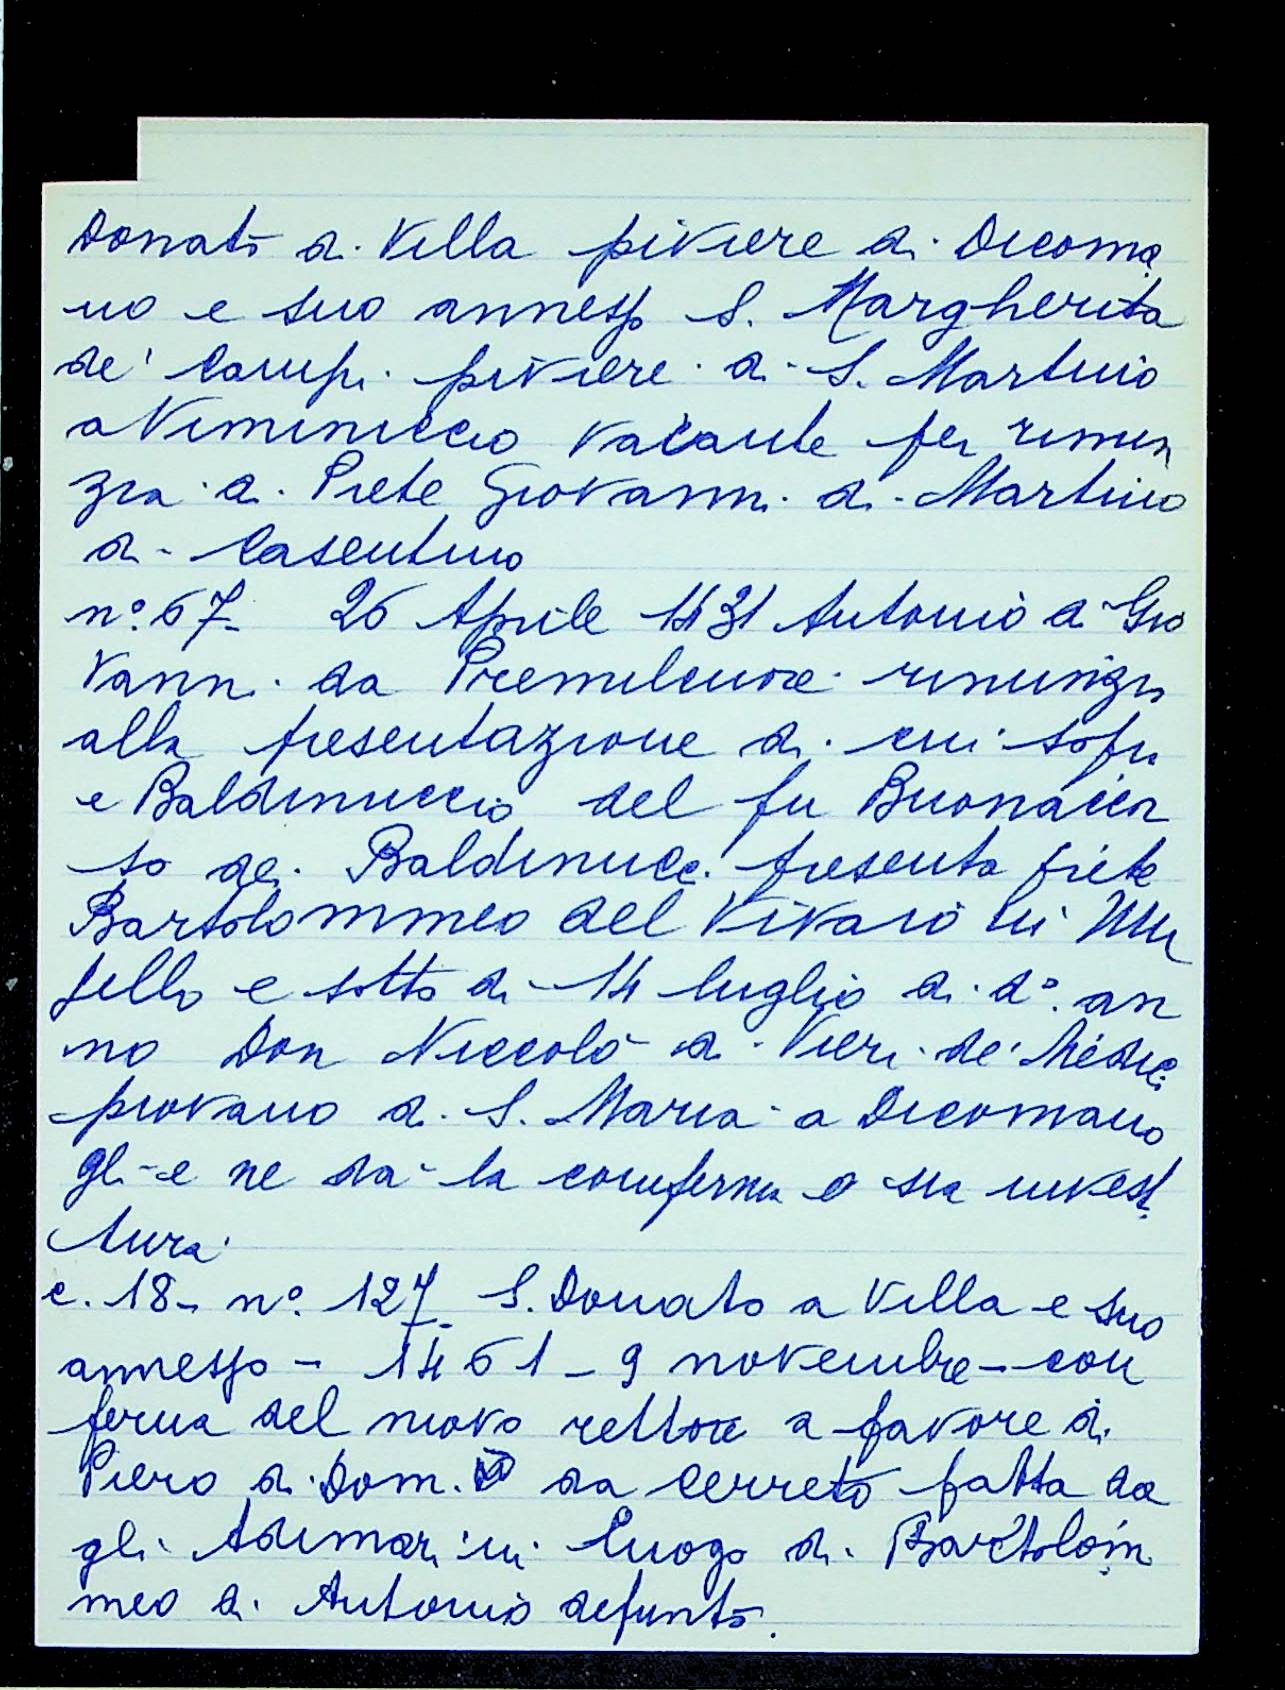 Donato a Villa piviere di Dicoma
no e suo annesso S. Margherita
de' Campi piviere di S. Martino
a Viminiccio vacante per rinun
zia di Prete Giovanni di Martino
di Casentino
n° 67- 26 Aprile 1431 Antonio di Gio
vanni da Premilcuore rinunzia
alla presentazione di cui sopra
e Baldinuccio del fu Buonaccor
so dei Baldinucci presenta prete
Bartolommeo del Vivaio in Mu
gello e sotto di 14 luglio di d° an
no Don Niccolò di Vieri de' Medici
piovano di S. Maria a Dicomano
gli e ne dà la conferma o sia investi
tura
c. 18- n° 127- S. Donato a Villa e suo
annesso - 1461 - 9 novembre - con
ferma del nuovo rettore a favore di
Piero di Dom. da Cerreto fatta da
gli Adimari in luogo di Bartolom
meo di Antonio defunto.